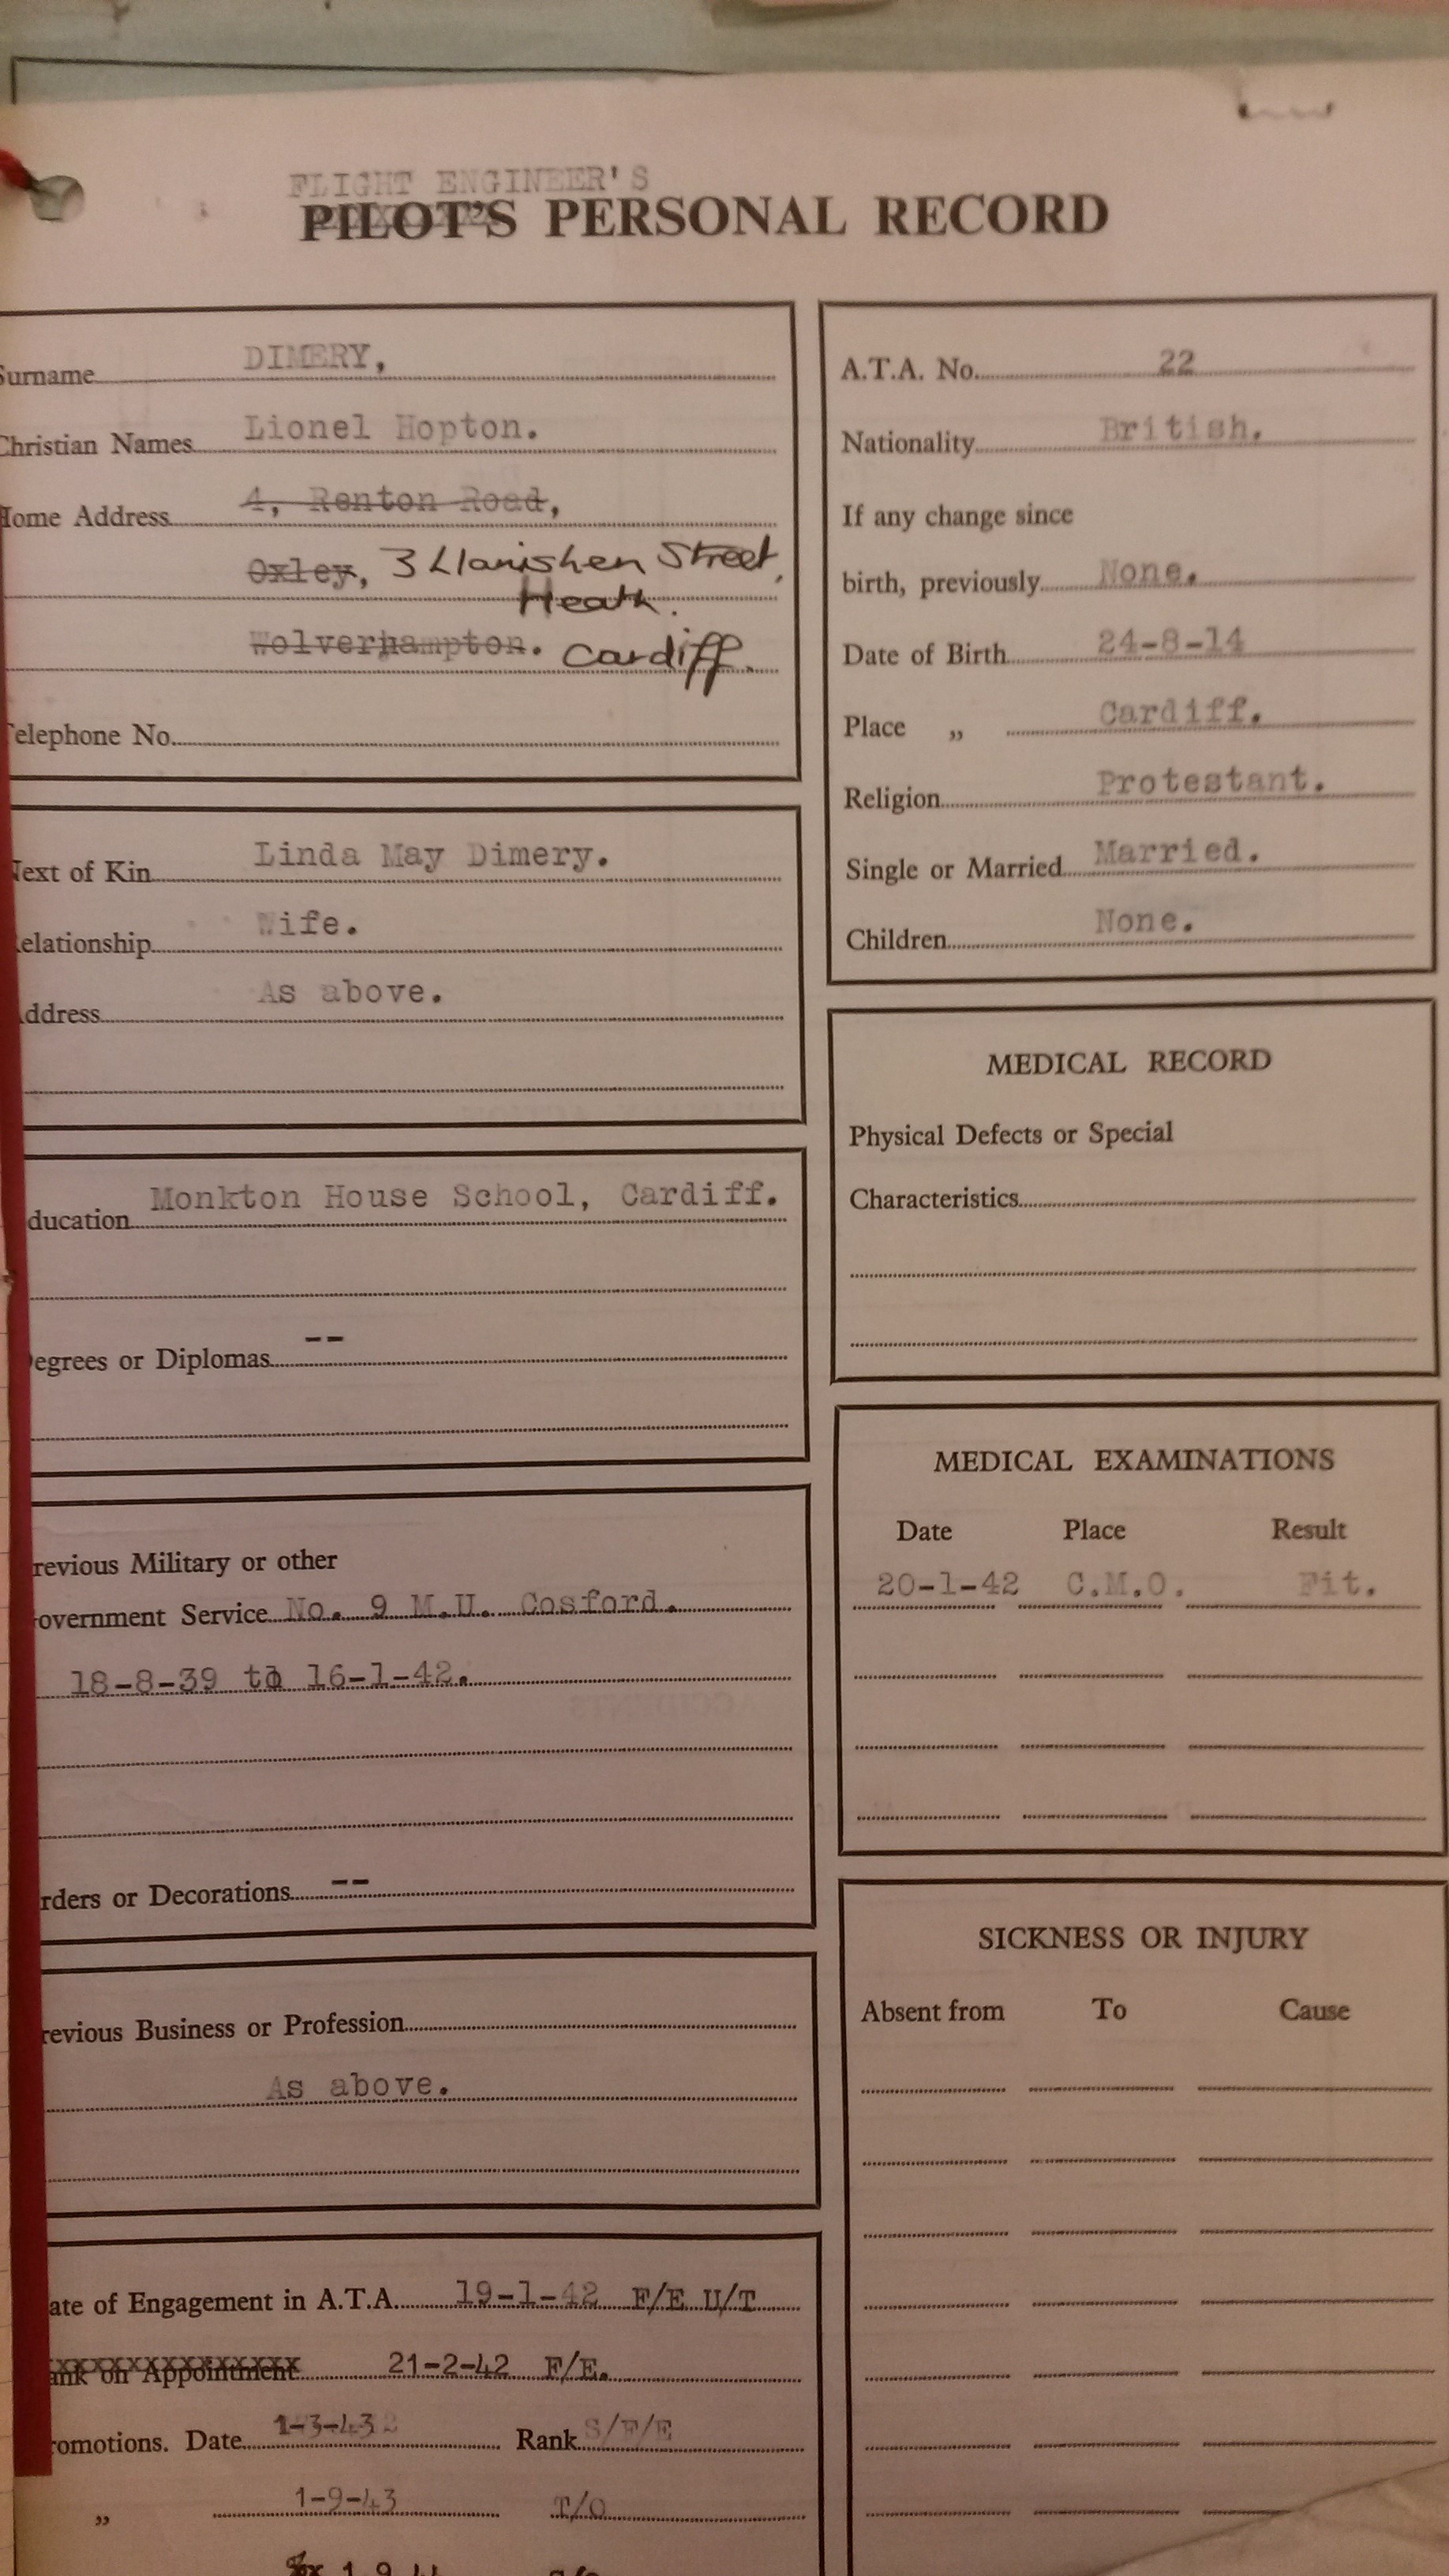 FLIGHT ENGINEER'S
PILOT'S PERSONAL RECORD
Surname DIMERY,
Christian Names Lionel Hopton.
Home Address 4, Renton Road,
Oxley, 3 Llanishen Street,
Heath.
Wolverhampton. Cardiff.
Telephone No.
Next of Kin Linda May Dimery.
Relationship Wife.
Address As above.
Education Monkton House School, Cardiff.
Degrees or Diplomas --
Previous Military or other
Government Service No. 9 M.U. Cosford.
18-8-39 to 16-1-42.
Orders or Decorations --
Previous Business or Profession
As above.
Date of Engagement in A.T.A. 19-1-42 F/E U/T
Rank on Appointment 21-2-42 F/E.
Promotions. Date 1-3-43 Rank S/F/E
„ 1-9-43 T/O
A.T.A. No. 22
Nationality British.
If any change since
birth, previously None.
Date of Birth 24-8-14
Place „ Cardiff.
Religion Protestant.
Single or Married Married.
Children None.
MEDICAL RECORD
Physical Defects or Special
Characteristics
MEDICAL EXAMINATIONS
Date Place Result
20-1-42 C.M.O. Fit.
SICKNESS OR INJURY
Absent from To Cause